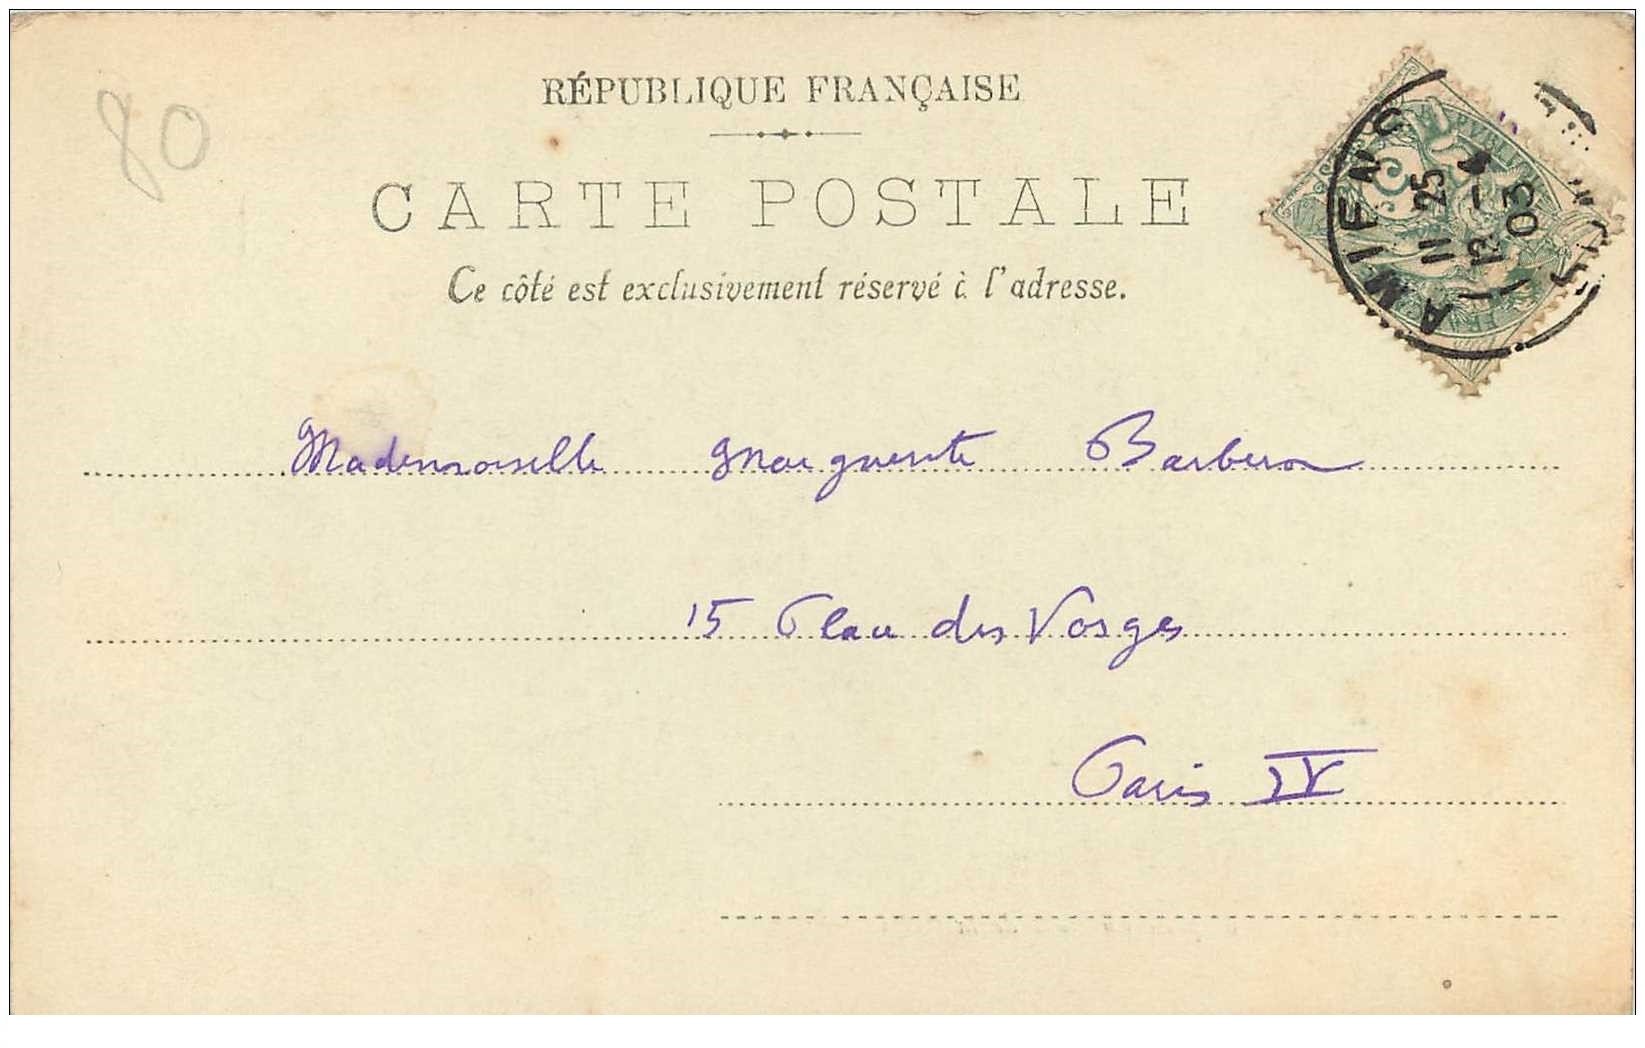 80
RÉPUBLIQUE FRANÇAISE
CARTE POSTALE
Ce côté est exclusivement réservé à l'adresse.
AMIENS
11 25
12 - 4
03
Mademoiselle Marguerite Barberon
15 Place des Vosges
Paris IV